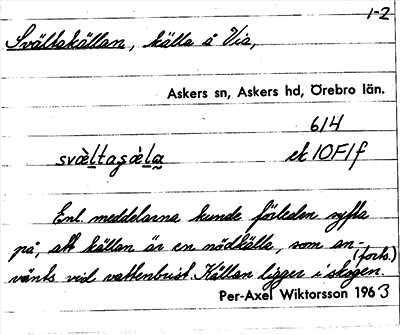 1-2
Svältakällan, källa å Via,
Askers sn, Askers hd, Örebro län.
614
svæ̀ltaɕæ̀la ek 10F1f
Enl. meddelarna kunde förleden syfta
på, att källan är en nödkälla, som an-
vänts vid vattenbrist. Källan ligger i skogen. (forts.)
Per-Axel Wiktorsson 1963